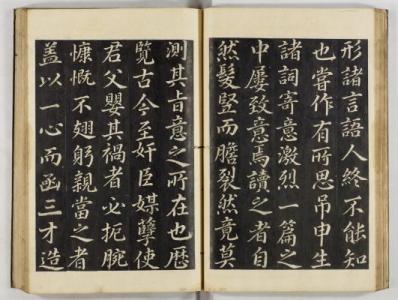 形諸言語人終不能知
也嘗作有所思吊申生
諸詞寄意激烈一篇之
中屢致意焉讀之者自
然髮竪而膽裂然竟莫
測其旨意之所在也歷
覽古今至奸臣媒孽使
君父嬰其禍者必扼腕
慷慨不翅躬親當之者
蓋以一心而函三才造